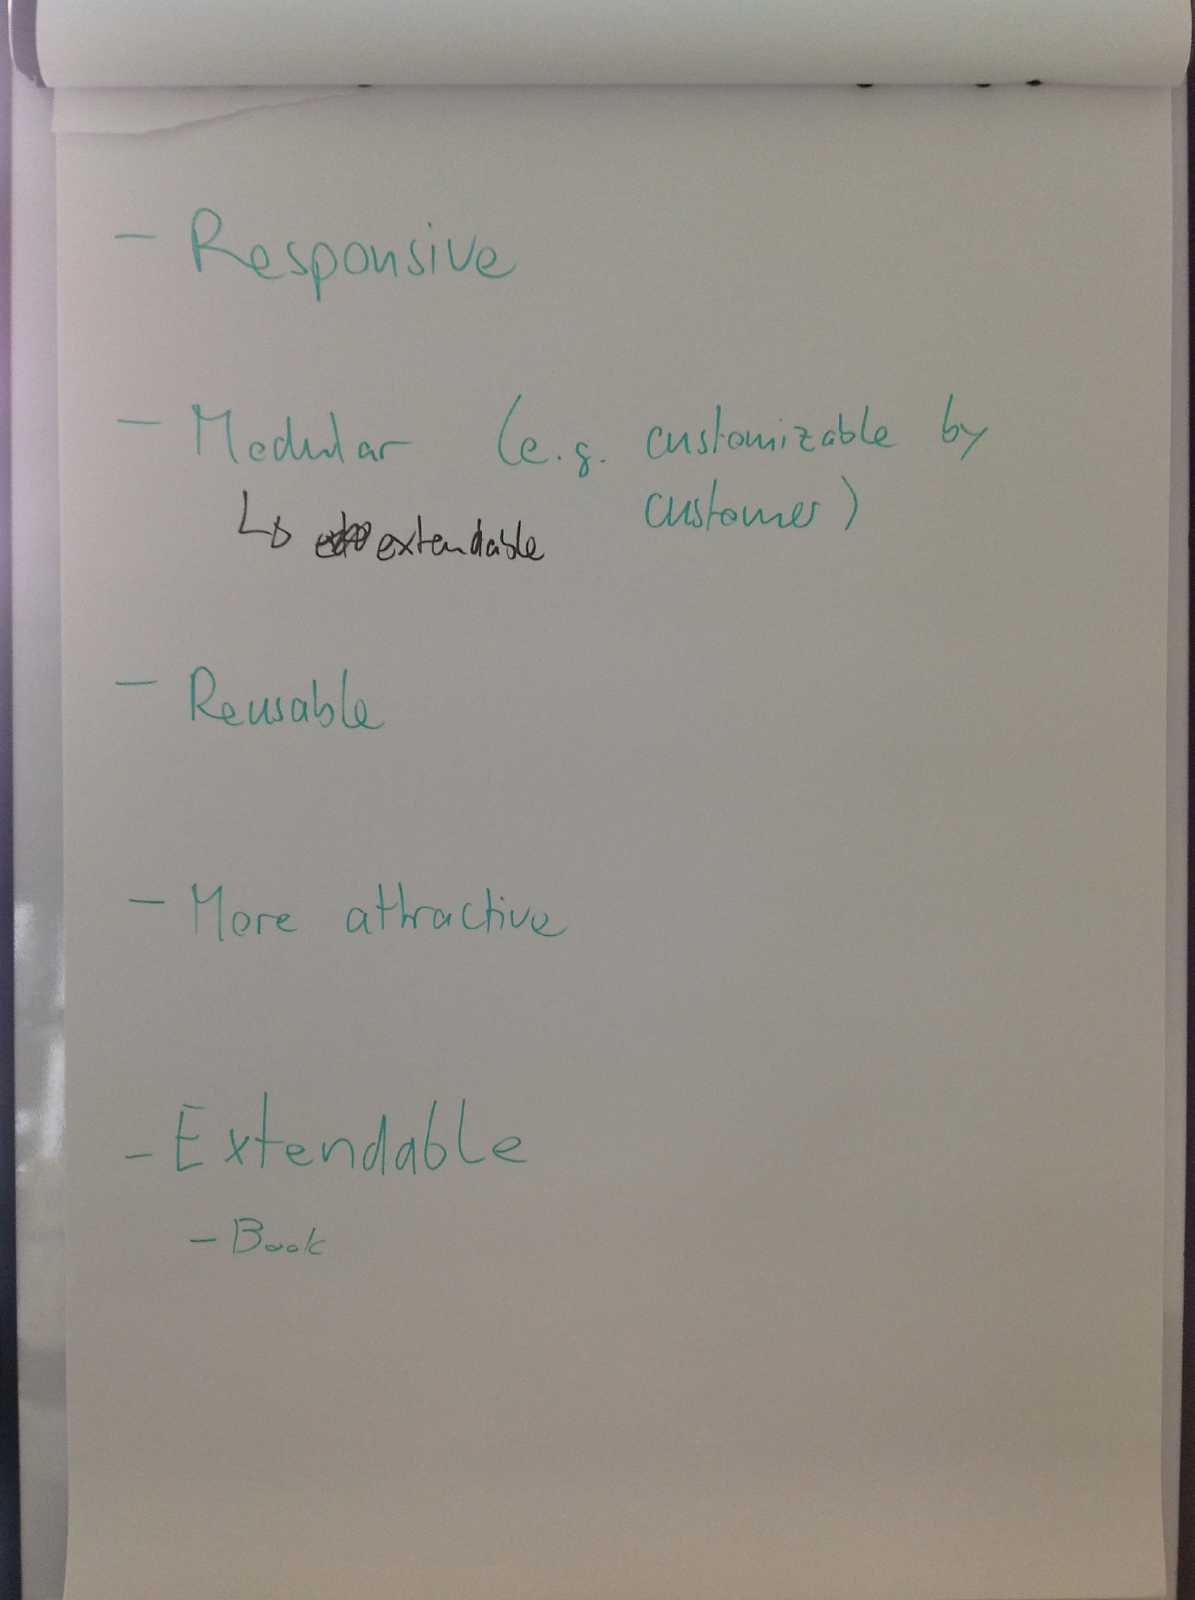 - Responsive
- Modular (e.g. customizable by
customer)
↳ extendable
- Reusable
- More attractive
- Extendable
- Book